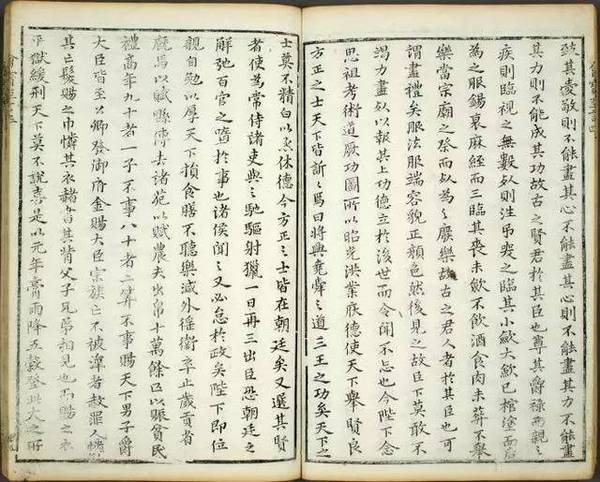 致其愛敬則不能盡其心不能盡其心則不能盡其力不能盡
其力則不能成其功故古之賢君於其臣也尊其爵祿而親之
疾則臨視之無數死則往弔哭之臨其小歛大歛已棺塗而后
為之服錫衰麻絰而三臨其喪未歛不飲酒食肉未葬不舉
樂當宗廟之祭而死為之廢樂故古之君人者於其臣也可
謂盡禮矣服法服端容貌正顏色然後見之故臣下莫敢不
竭力盡死以報其上功德立於後世而令聞不忘也今陛下念
思祖考術追厥功圖所以昭光洪業庥德使天下舉賢良
方正之士天下皆訢々焉曰將興堯舜之道三王之功矣天下之
士莫不精白以承休德今方正之士皆在朝廷矣又選其賢
者使為常侍諸吏與之馳驅射獵一日再三出臣恐朝廷之
解弛百官之墮於事也諸侯聞之又必怠於政矣陛下即位
親自勉以厚天下損食膳不聽樂減外徭衛卒止歲貢省
廐馬以賦縣傳去諸苑以賦農夫出帛十萬餘匹以賑貧民
禮高年九十者一子不事八十者二算不事賜天下男子爵
大臣皆至公卿發御府金賜大臣宗族亡不被澤者赦罪人憐
其亡髮賜之巾憐其衣赭書其背父子兄弟相見也而賜之衣
平獄緩刑天下莫不說喜是以元年膏雨降五穀登此天之所